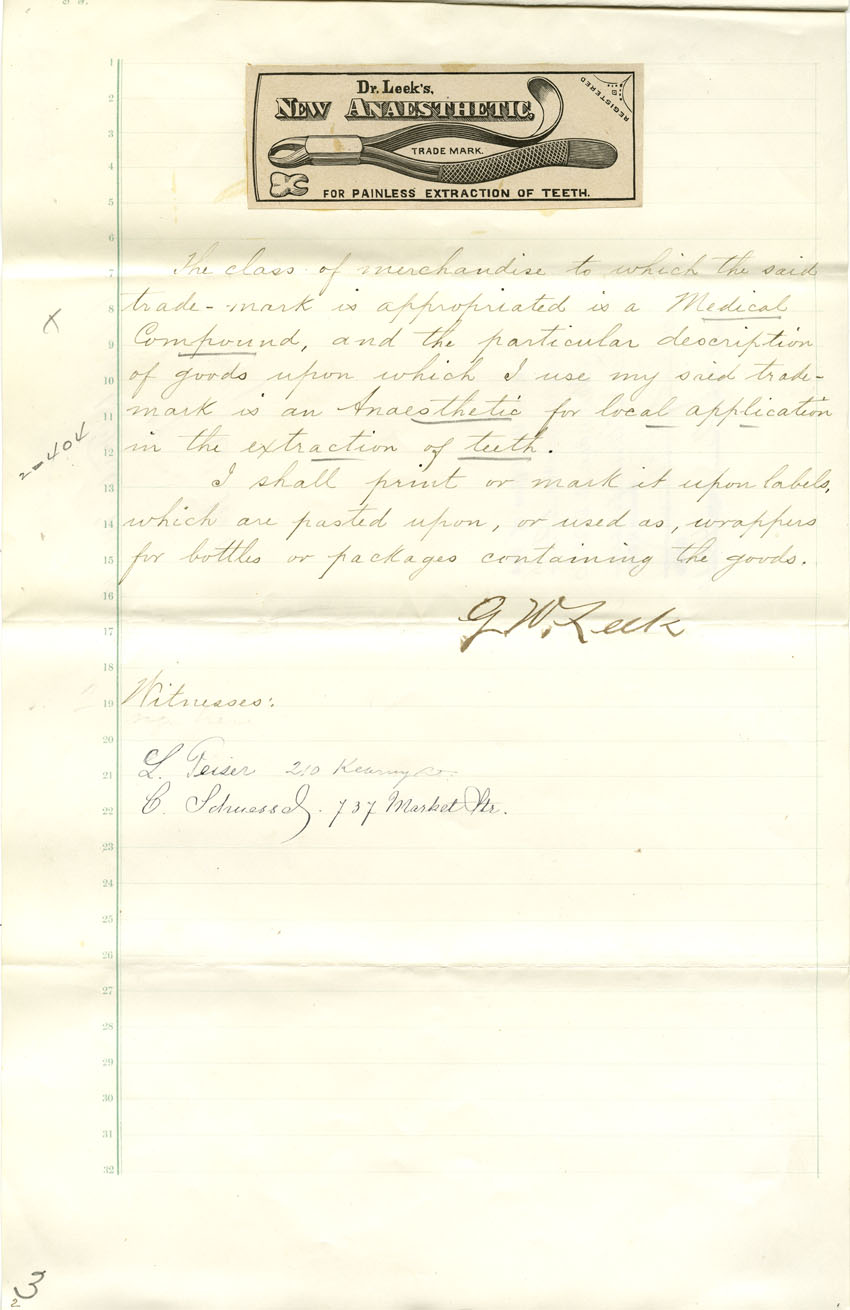 Dr. Leek's,
NEW ANAESTHETIC,
REGISTERED
TRADE MARK.
FOR PAINLESS EXTRACTION OF TEETH.
1
2
3
4
5
6
7
8
9
10
11
12
13
14
15
16
17
18
19
20
21
22
23
24
25
26
27
28
29
30
31
32
The class of merchandise to which the said
trade-mark is appropriated is a Medical
Compound, and the particular description
of goods upon which I use my said trade-
mark is an Anaesthetic for local application
in the extraction of teeth.
I shall print or mark it upon labels,
which are pasted upon, or used as, wrappers
for bottles or packages containing the goods.
G. W. Leek
Witnesses:
L. Peiser 210 Kearny
C. 737 Market Str.
X
2-404
3
2